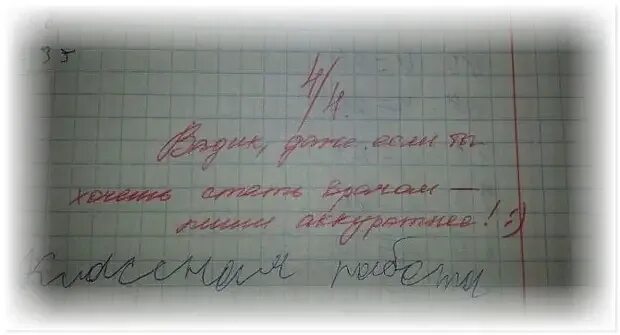 35
4/4.
Вадик, даже если ты
хочешь стать врачом —
пиши аккуратнее! :)
Классная работа